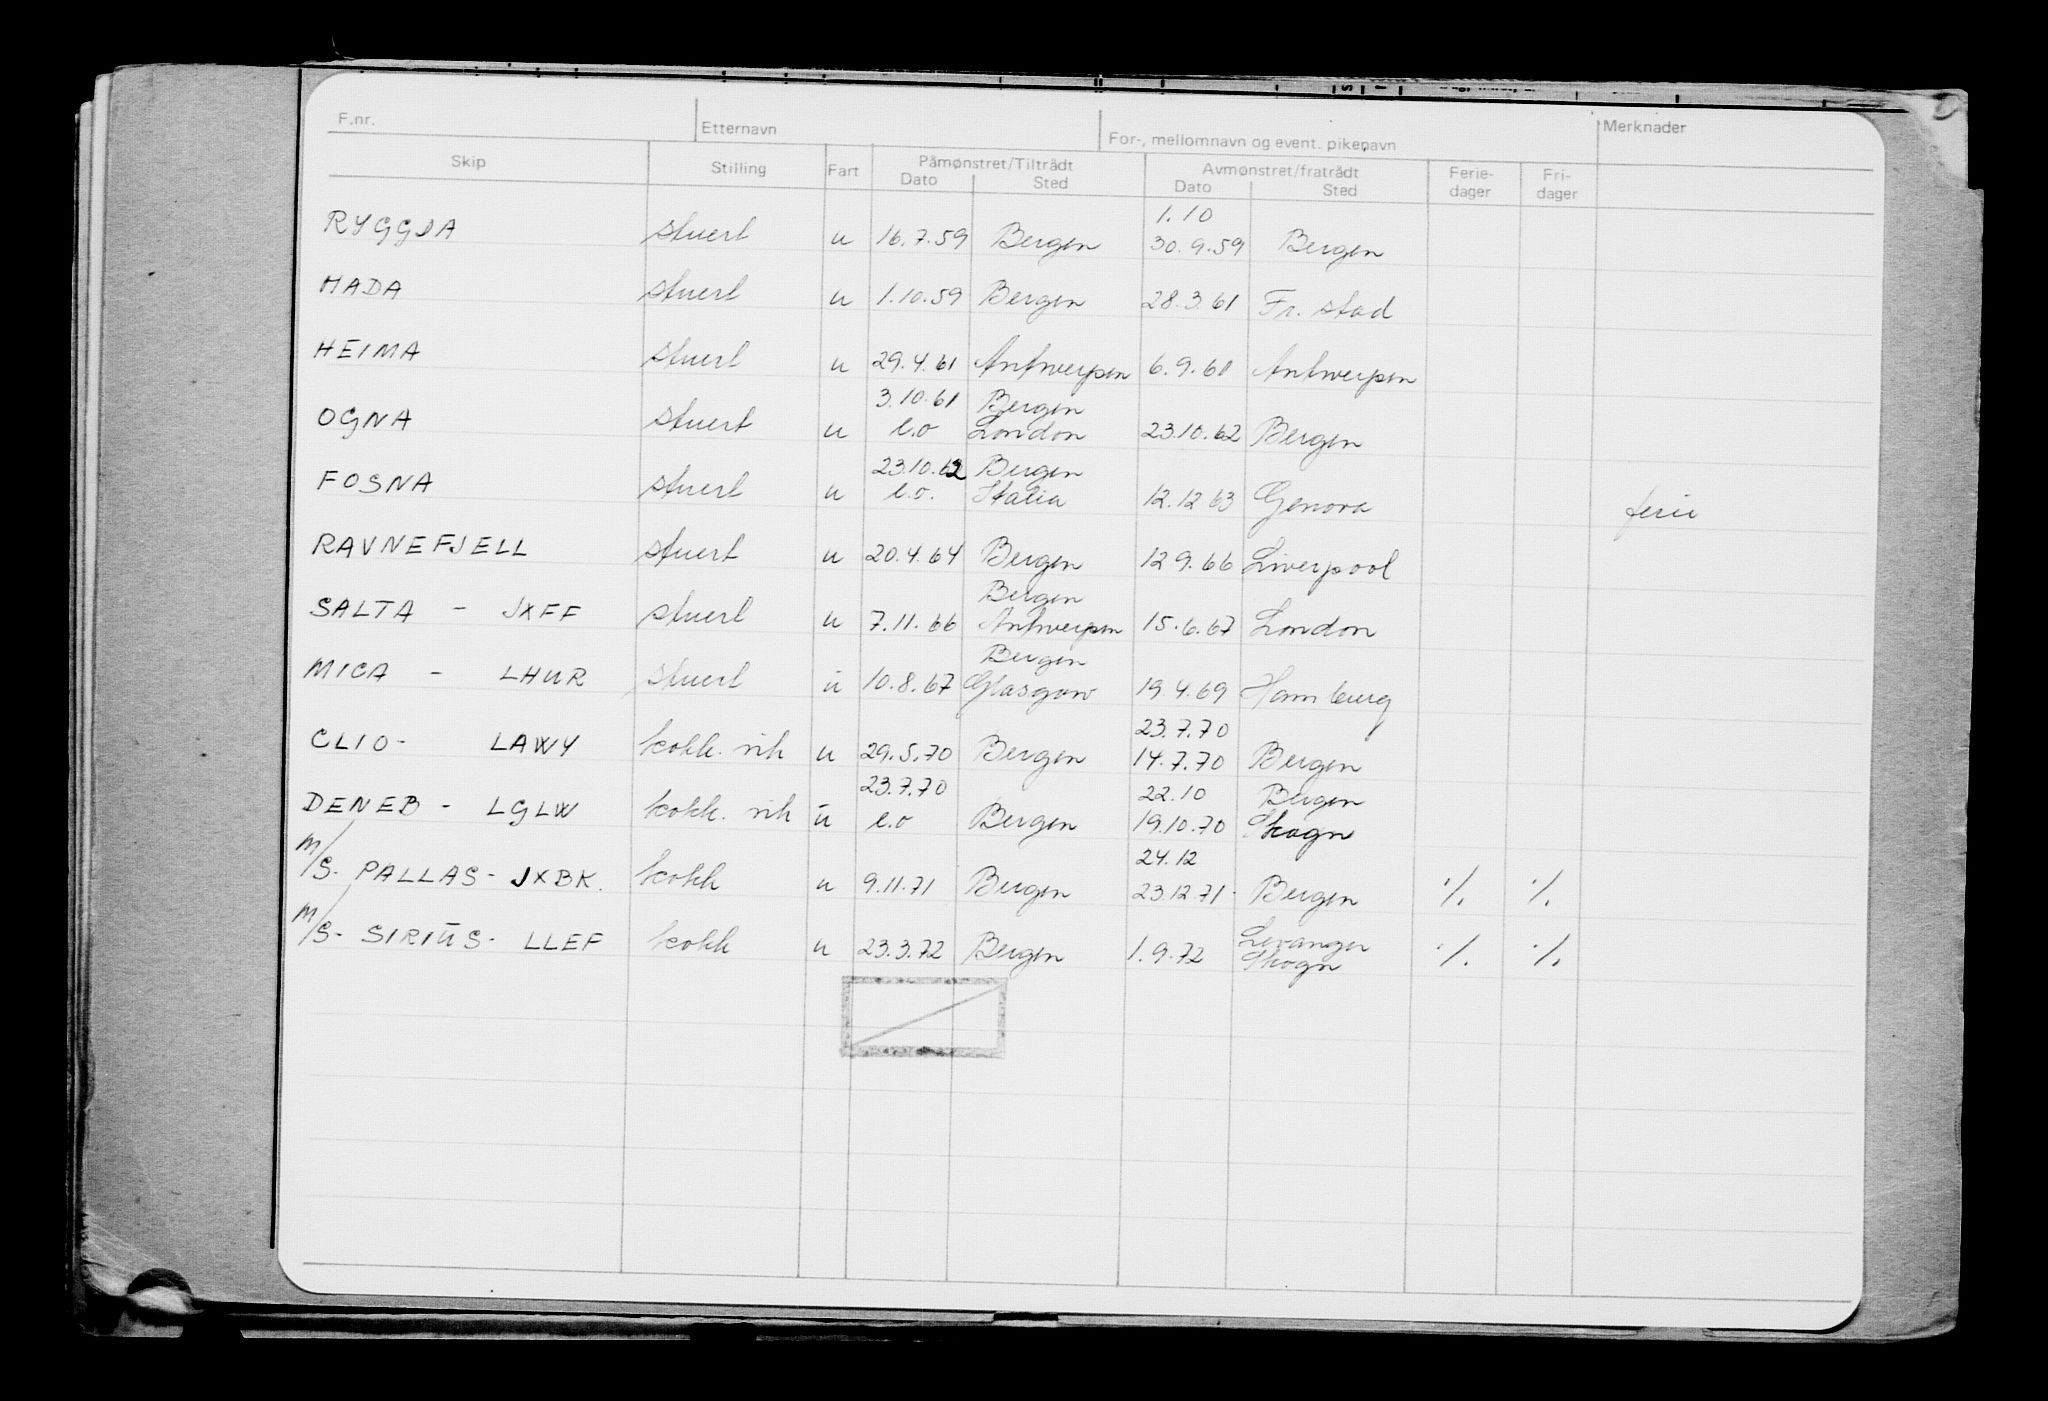 F.nr. Etternavn For-, mellomnavn og event. pikenavn Merknader
Skip Stilling Fart Påmønstret/Tiltrådt Avmønstret/fratrådt Ferie- Fri-
Dato Sted Dato Sted dager dager
1.10
RYGGJA stuert u 16.7.59 Bergen 30.9.59 Bergen
HADA stuert u 1.10.59 Bergen 28.3.61 Fr. stad
HEIMA stuert u 29.4.61 Antwerpen 6.9.61 Antwerpen
3.10.61 Bergen
OGNA stuert u e.o London 23.10.62 Bergen
23.10.62 Bergen
FOSNA stuert u e.o. Italia 12.12.63 Genova ferie
RAVNEFJELL stuert u 20.4.64 Bergen 12.9.66 Liverpool
Bergen
SALTA - JXFF stuert u 7.11.66 Antwerpen 15.6.67 London
Bergen
MICA - LHUR stuert u 10.8.67 Glasgow 19.4.69 Hamburg
23.7.70
CLIO - LAWY kokk. vik u 29.5.70 Bergen 14.7.70 Bergen
23.7.70 22.10 Bergen
DENEB - LGLW kokk. vik u e.o Bergen 19.10.70 Skogn
24.12
M/S. PALLAS - JXBK. kokk u 9.11.71 Bergen 23.12.71. Bergen ./. ./.
Levanger
M/S- SIRIUS - LLEF kokk u 23.3.72 Bergen 1.9.72 Skogn ./. ./.